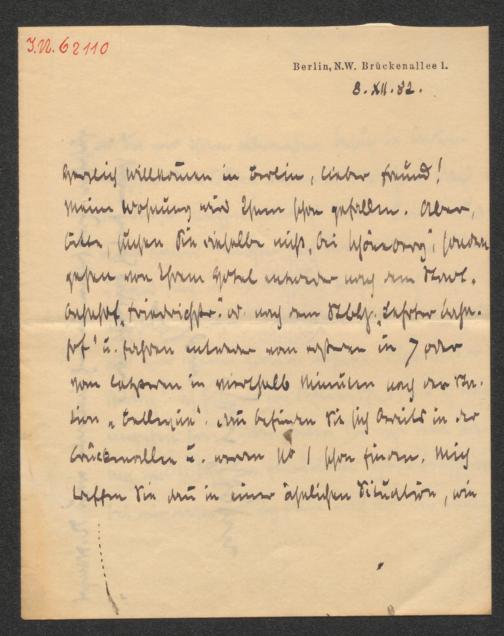 J.N. 62110
Berlin, N.W. Brückenallee 1.
8. XII. 82.
Herzlich willkommen in Berlin, lieber Freund!
Meine Wohnung wird Ihnen schon gefallen. Aber,
bitte, suchen Sie dieselbe nicht „bei Schöneberg", sondern
gehen von Ihrem Hotel entweder nach dem Stadt-
bahnhof „Friedrichstr." od. nach dem Stbhf. „Lehrter Bahn-
hof" u. fahren entweder vom ersteren in 7 oder
vom letzteren in vierthalb Minuten nach der Sta-
tion „Bellevue". Dann befinden Sie sich bereits in der
Brückenallee u. werden No 1 schon finden. Mich
treffen Sie dann in einer ähnlichen Situation, wie